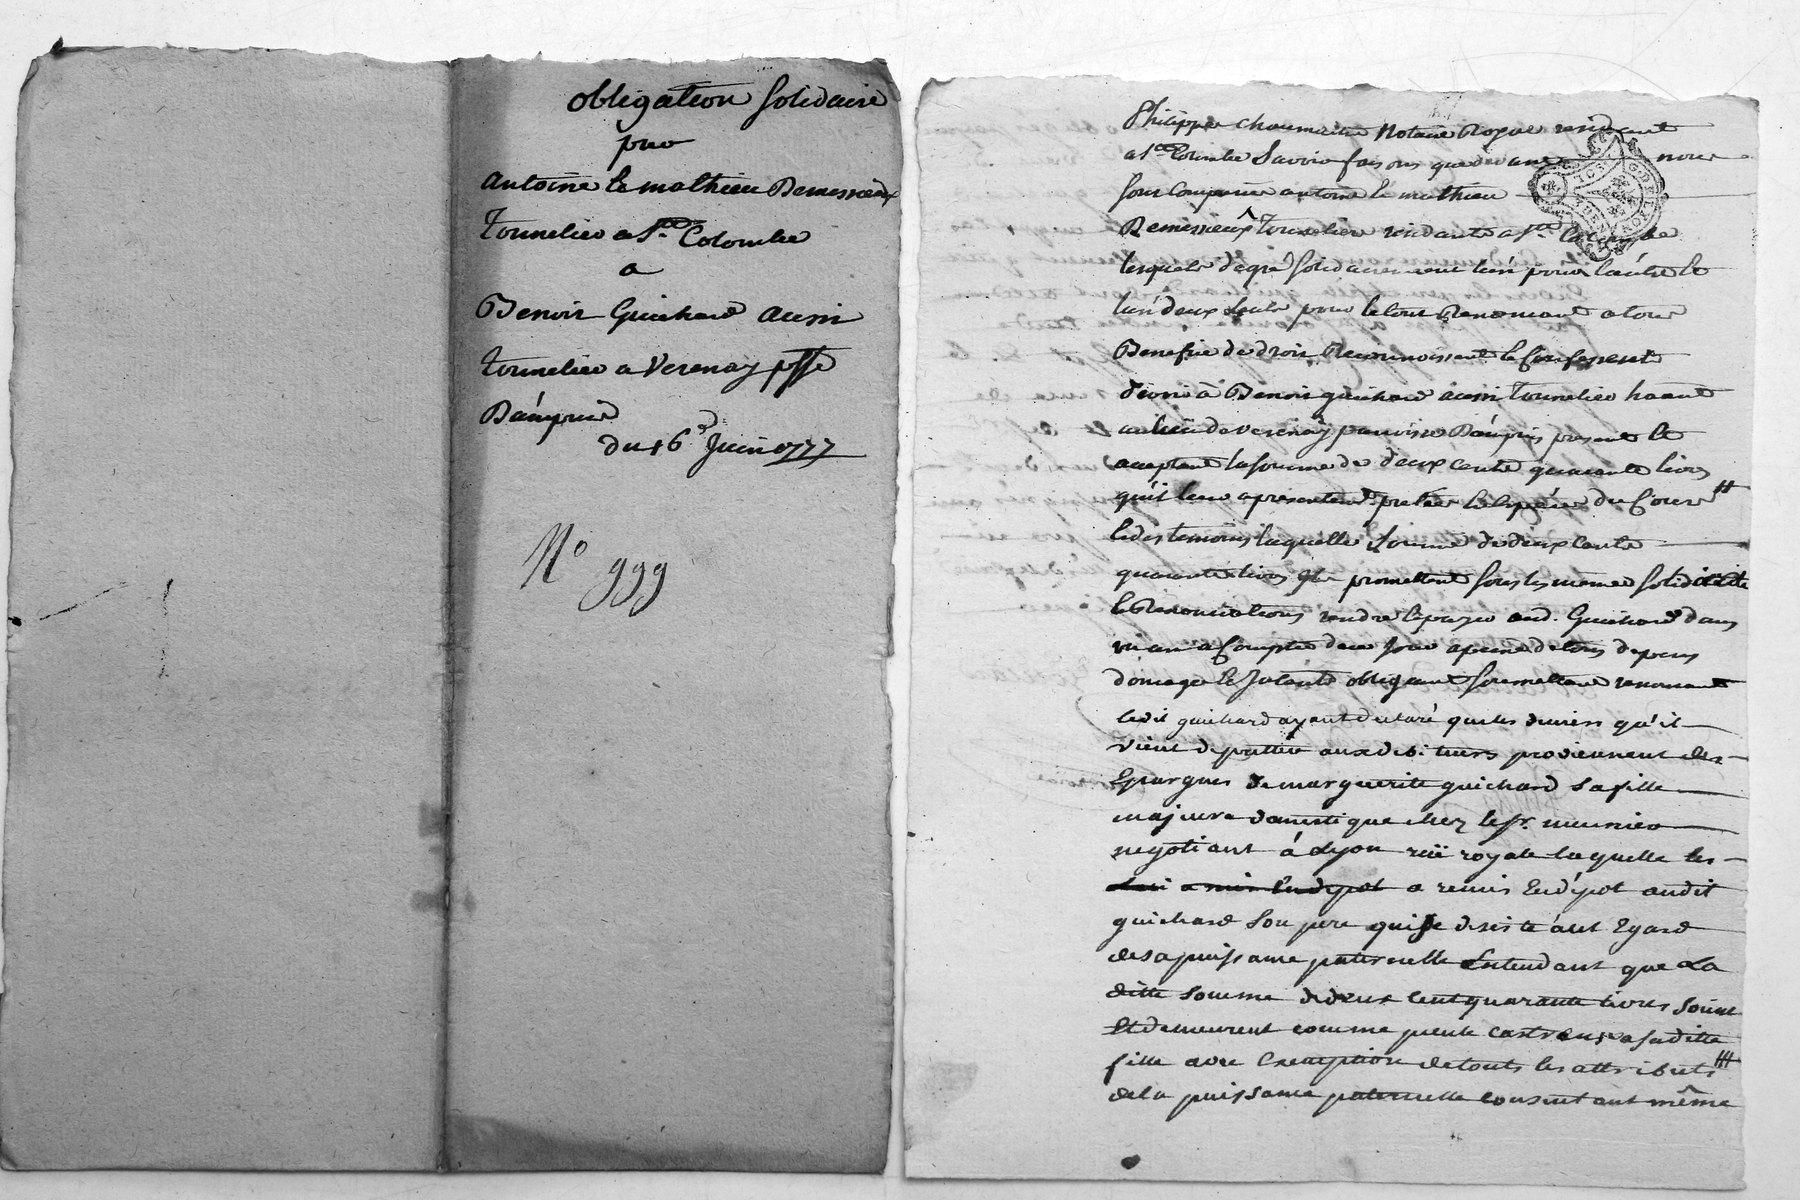 obligation solidaire
pour
antoine & mathieu Remessieux
Tonnelier a Ste. Colombe
a
Benoit Guichard aussi
Tonnelier a Verenay psse
Dampuis
du 16 Juin 1777
No 999
Philippe Notaire Royal residant
a Ste Colombe Savoir faisons que devant nous
sont comparus antoine & mathieu
Remessieux tonneliers residants a Ste Colombe
lesquels de gré solidairement l'un pour l'autre &
l'un d'eux seul pour le tout Renoncant a tout
Benefice de droit Reconnoissent & confessent
devoir à Benoit guichard aussi tonnelier habitant
au lieu de verenay parroisse Dampuis present &
acceptant la somme de deux cents quarante livres
qu'il leur a presentement pretée du cours
& des temoins laquelle somme de deux cents
quarante livres ils promettent sous les memes solidarité
& Renonciations rendre & payer aud. Guichard dans
un an a compter de ce jour a peine de tous depens
domages & Interets obligeant soumettant renonceant
ledit guichard ayant declaré que les deniers qu'il
vient de pretter aux debiteurs proviennent des
Epargnes de marguerite guichard sa fille
majeure domestique chez le sr. meunier
negotiant à Lyon rüe royale laquelle les
a remis En dépot audit
guichard son pere qui se desiste à cet Egard
de sa puissance paternelle Entendant que La
ditte somme de deux cent quarante livres soient
Et demeurent comme pecule castrense a sa ditte
fille avec Exemption de touts les attributs
de la puissance paternelle consentant même